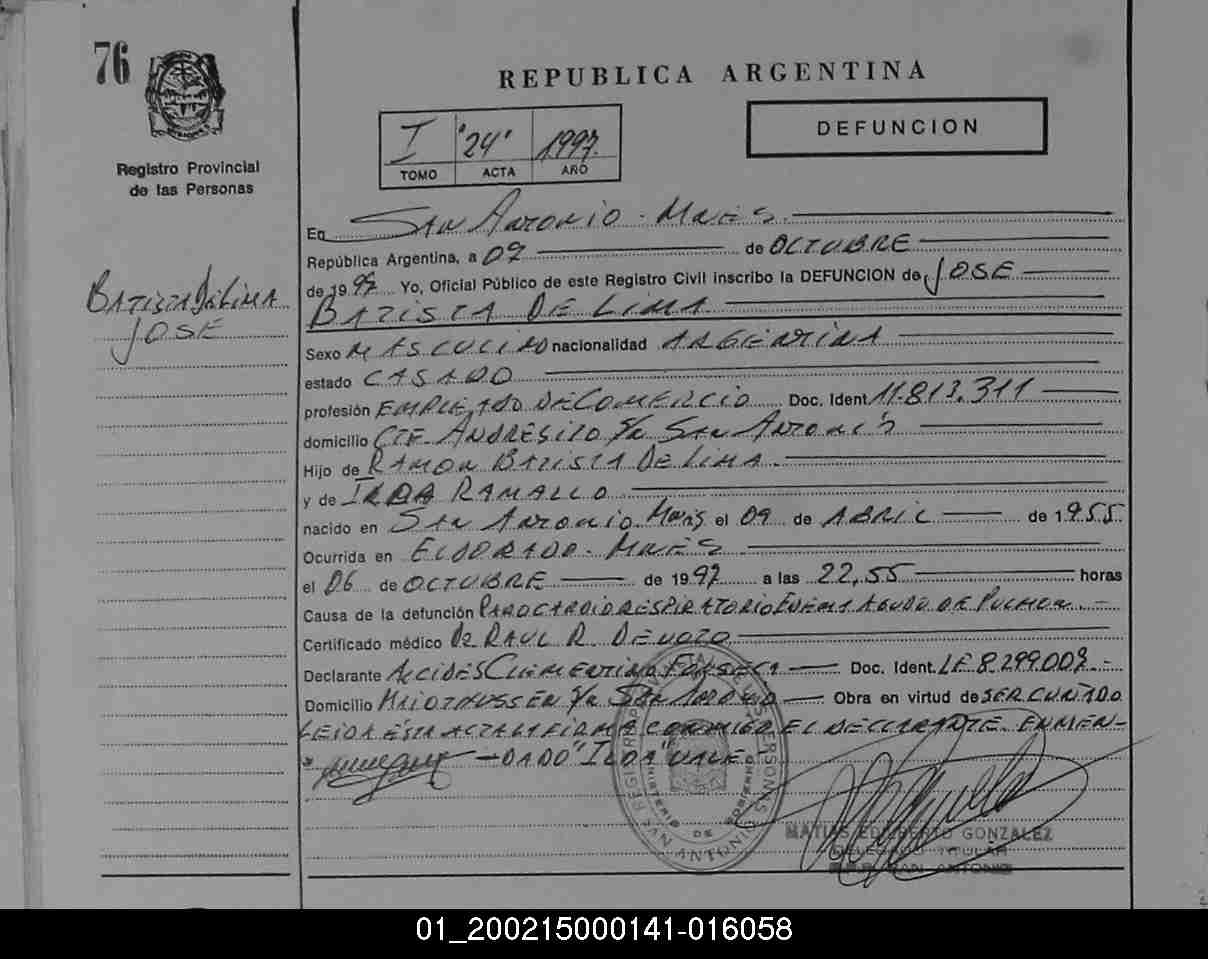 76
Registro Provincial
de las Personas
BATISTA DE LIMA
JOSE
REPUBLICA ARGENTINA
I "24" 1997.
TOMO ACTA AÑO
DEFUNCION
En SAN ANTONIO - MNES.
República Argentina, a 07 de OCTUBRE
de 1997 Yo, Oficial Público de este Registro Civil inscribo la DEFUNCION de JOSE
BATISTA DE LIMA
Sexo MASCULINO nacionalidad ARGENTINA
estado CASADO
profesión EMPLEADO DE COMERCIO Doc. Ident 11.813.311
domicilio CTE ANDRESITO S/N SAN ANTONIO
Hijo de RAMON BATISTA DE LIMA
y de ILDA RAMALLO
nacido en SAN ANTONIO Mnes el 09 de ABRIL de 1955
Ocurrida en ELDORADO - MNES
el 06 de OCTUBRE de 1997 a las 22,55 horas
Causa de la defunción PAROCARDIORESPIRATORIO EDEMA AGUDO DE PULMON
Certificado médico DR RAUL R. DEVOTO
Declarante ALCIDES CLEMENTINO FONSECA Doc. Ident. LE 8.299.007
Domicilio S/N SAN ANTONIO Obra en virtud de SER CUÑADO
LEIDA ESTA ACTA LA FIRMA CONMIGO EL DECLARANTE. ENMEN-
-DADO "ILDA" VALE.-
REGISTRO PERSONAS
MINISTERIO DE GOBIERNO
SAN ANTONIO
MATIAS EDILBERTO GONZALEZ
DELEGADO TITULAR
SAN ANTONIO
01_200215000141-016058